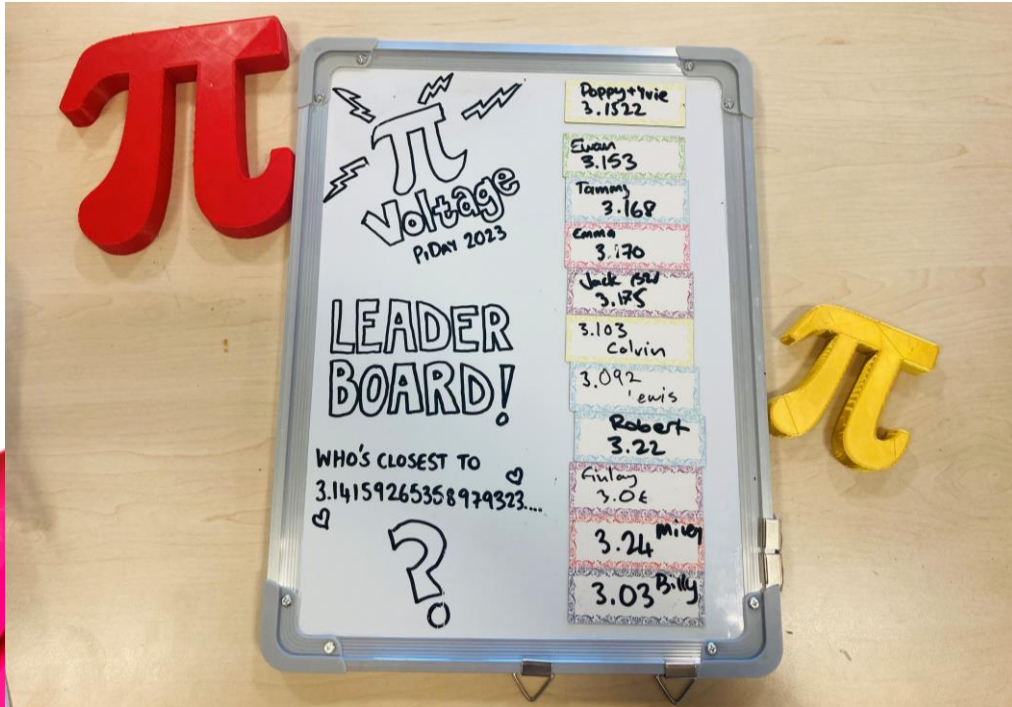 π
Voltage
Pi DAY 2023
LEADER
BOARD!
WHO'S CLOSEST TO
3.14159265358979323....
?
Poppy + Yvie
3.1522
Ewan
3.153
Tammy
3.168
Emma
3.170
Jack
3.175
3.103
Calvin
3.092
Robert
3.22
Finlay
3.24
3.03 Billy